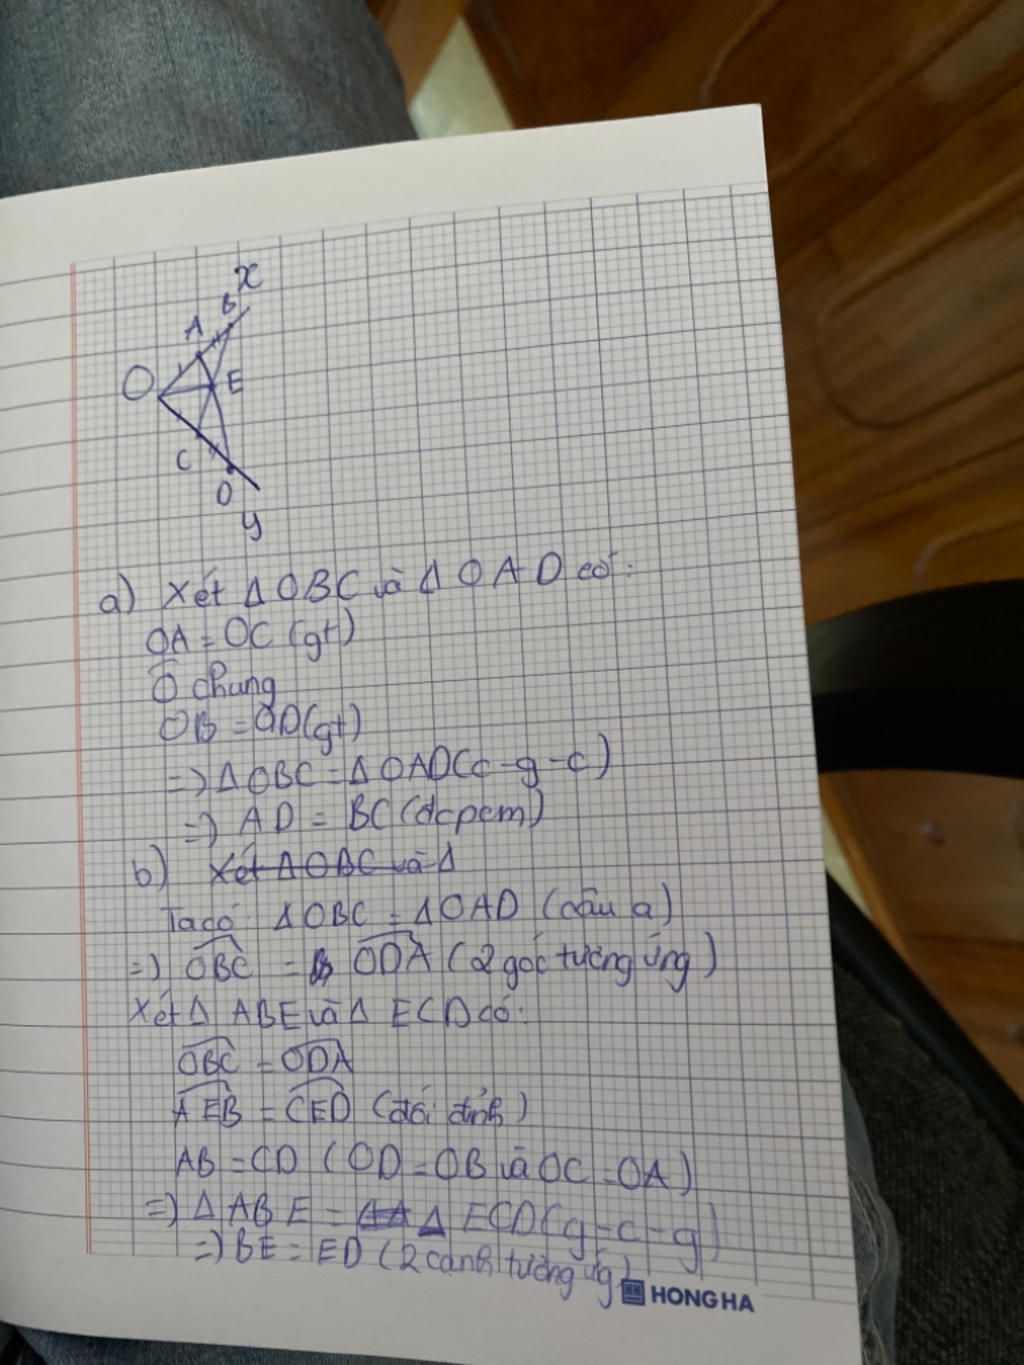 x
B
A
O
E
C
D
y
a) Xét Δ OBC và Δ OAD có:
OA = OC (gt)
Ô chung
OB = OD (gt)
=> Δ OBC = Δ OAD (c-g-c)
=> AD = BC (đcpcm)
b) Xét Δ OBC và Δ
Ta có: Δ OBC = Δ OAD (câu a)
=> OBC = ODA (2 góc tương ứng)
Xét Δ ABE và Δ ECD có:
OBC = ODA
AEB = CED (đối đỉnh)
AB = CD (OD = OB và OC = OA)
=> Δ ABE = Δ ECD (g-c-g)
=> BE = ED (2 cạnh tương ứng)
HONG HA